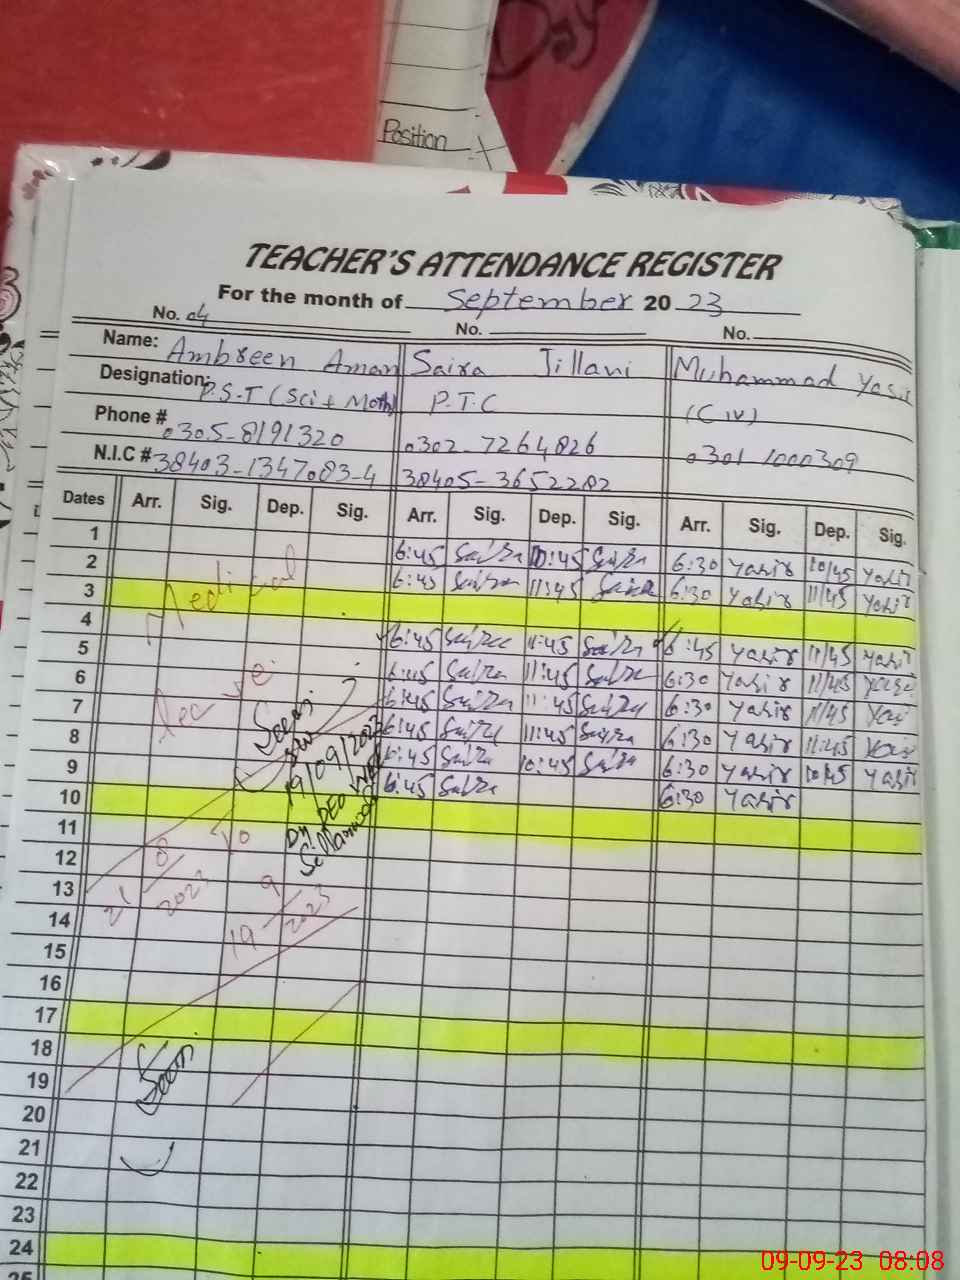 Position
TEACHER'S ATTENDANCE REGISTER
For the month of September 20 23
No. 04 No. No.
Name: Ambreen Aman Saira Jillani Muhammad Yasir
Designation: P.S.T (Sci + Math) P.T.C (C IV)
Phone # 0305-8191320 0302-7264826 0301 1000309
N.I.C # 38403-1347083-4 38405-3652282
Dates Arr. Sig. Dep. Sig. Arr. Sig. Dep. Sig. Arr. Sig. Dep. Sig.
1 6:45 Saira 10:45 Saira 6:30 Yasir 10/45 Yasir
2 6:45 Saira 11:45 Saira 6:30 Yasir 11/45 Yasir
3 Medical
4 6:45 Saira 11:45 Saira 6:45 Yasir 11/45 Yasir
5 6:45 Saira 11:45 Saira 6:30 Yasir 11/45 Yasir
6 leave 6:45 Saira 11:45 Saira 6:30 Yasir 11/45
7 Seen 6:45 Saira 11:45 Saira 6:30 Yasir 11:45
8 6:45 Saira 10:45 Saira 6:30 Yasir 10:45 Yasir
9 6:45 Saira 6:30 Yasir
10
11
12
13
14
15
16
17
18
19
20
21
22
23
24
25
19/09/2023
Dy DEO
Sillanwali
21/8/2023 To 19/9/2023
Seen
09-09-23 08:08